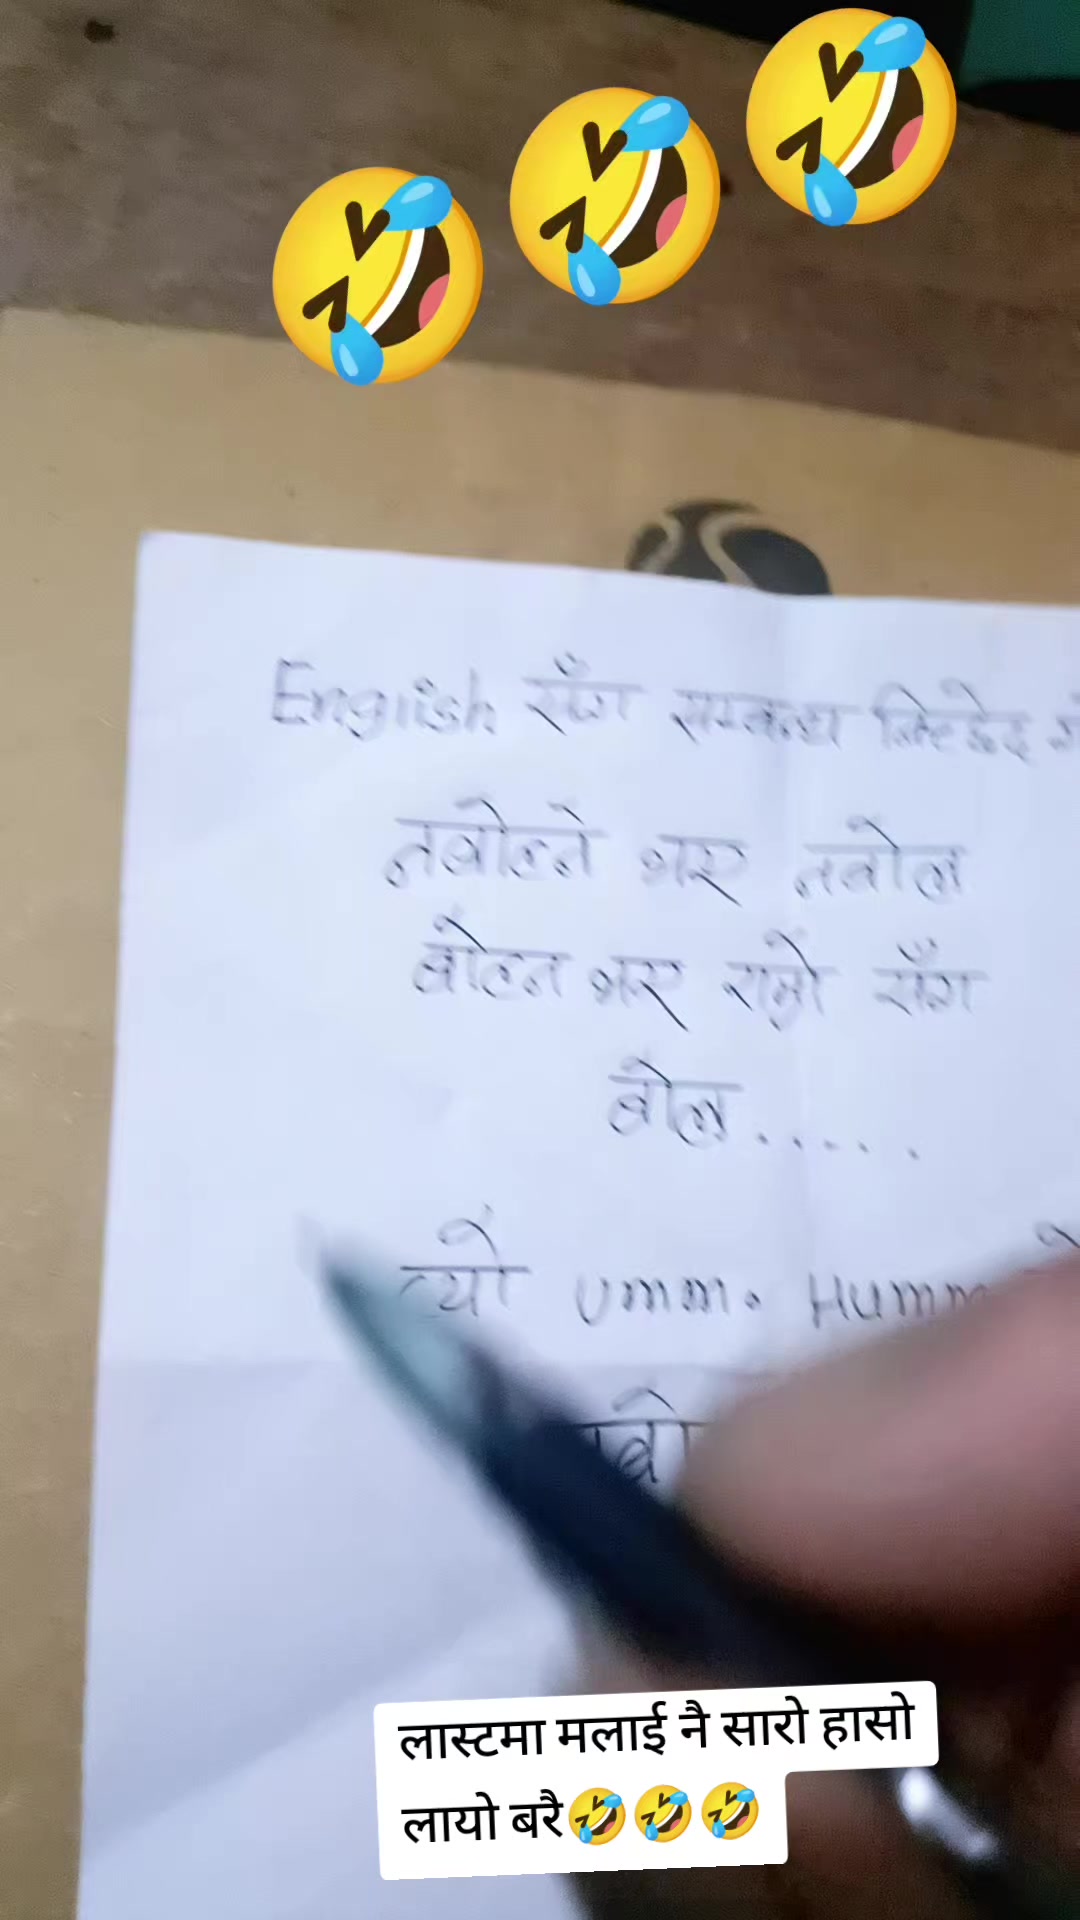 English सँग सम्बन्ध
नबोल्ने भए नबोल
बोल्न भए राम्रो सँग
बोल.....
त्यो Umm. Humm
लास्टमा मलाई नै सारो हासो
लायो बरै🤣🤣🤣